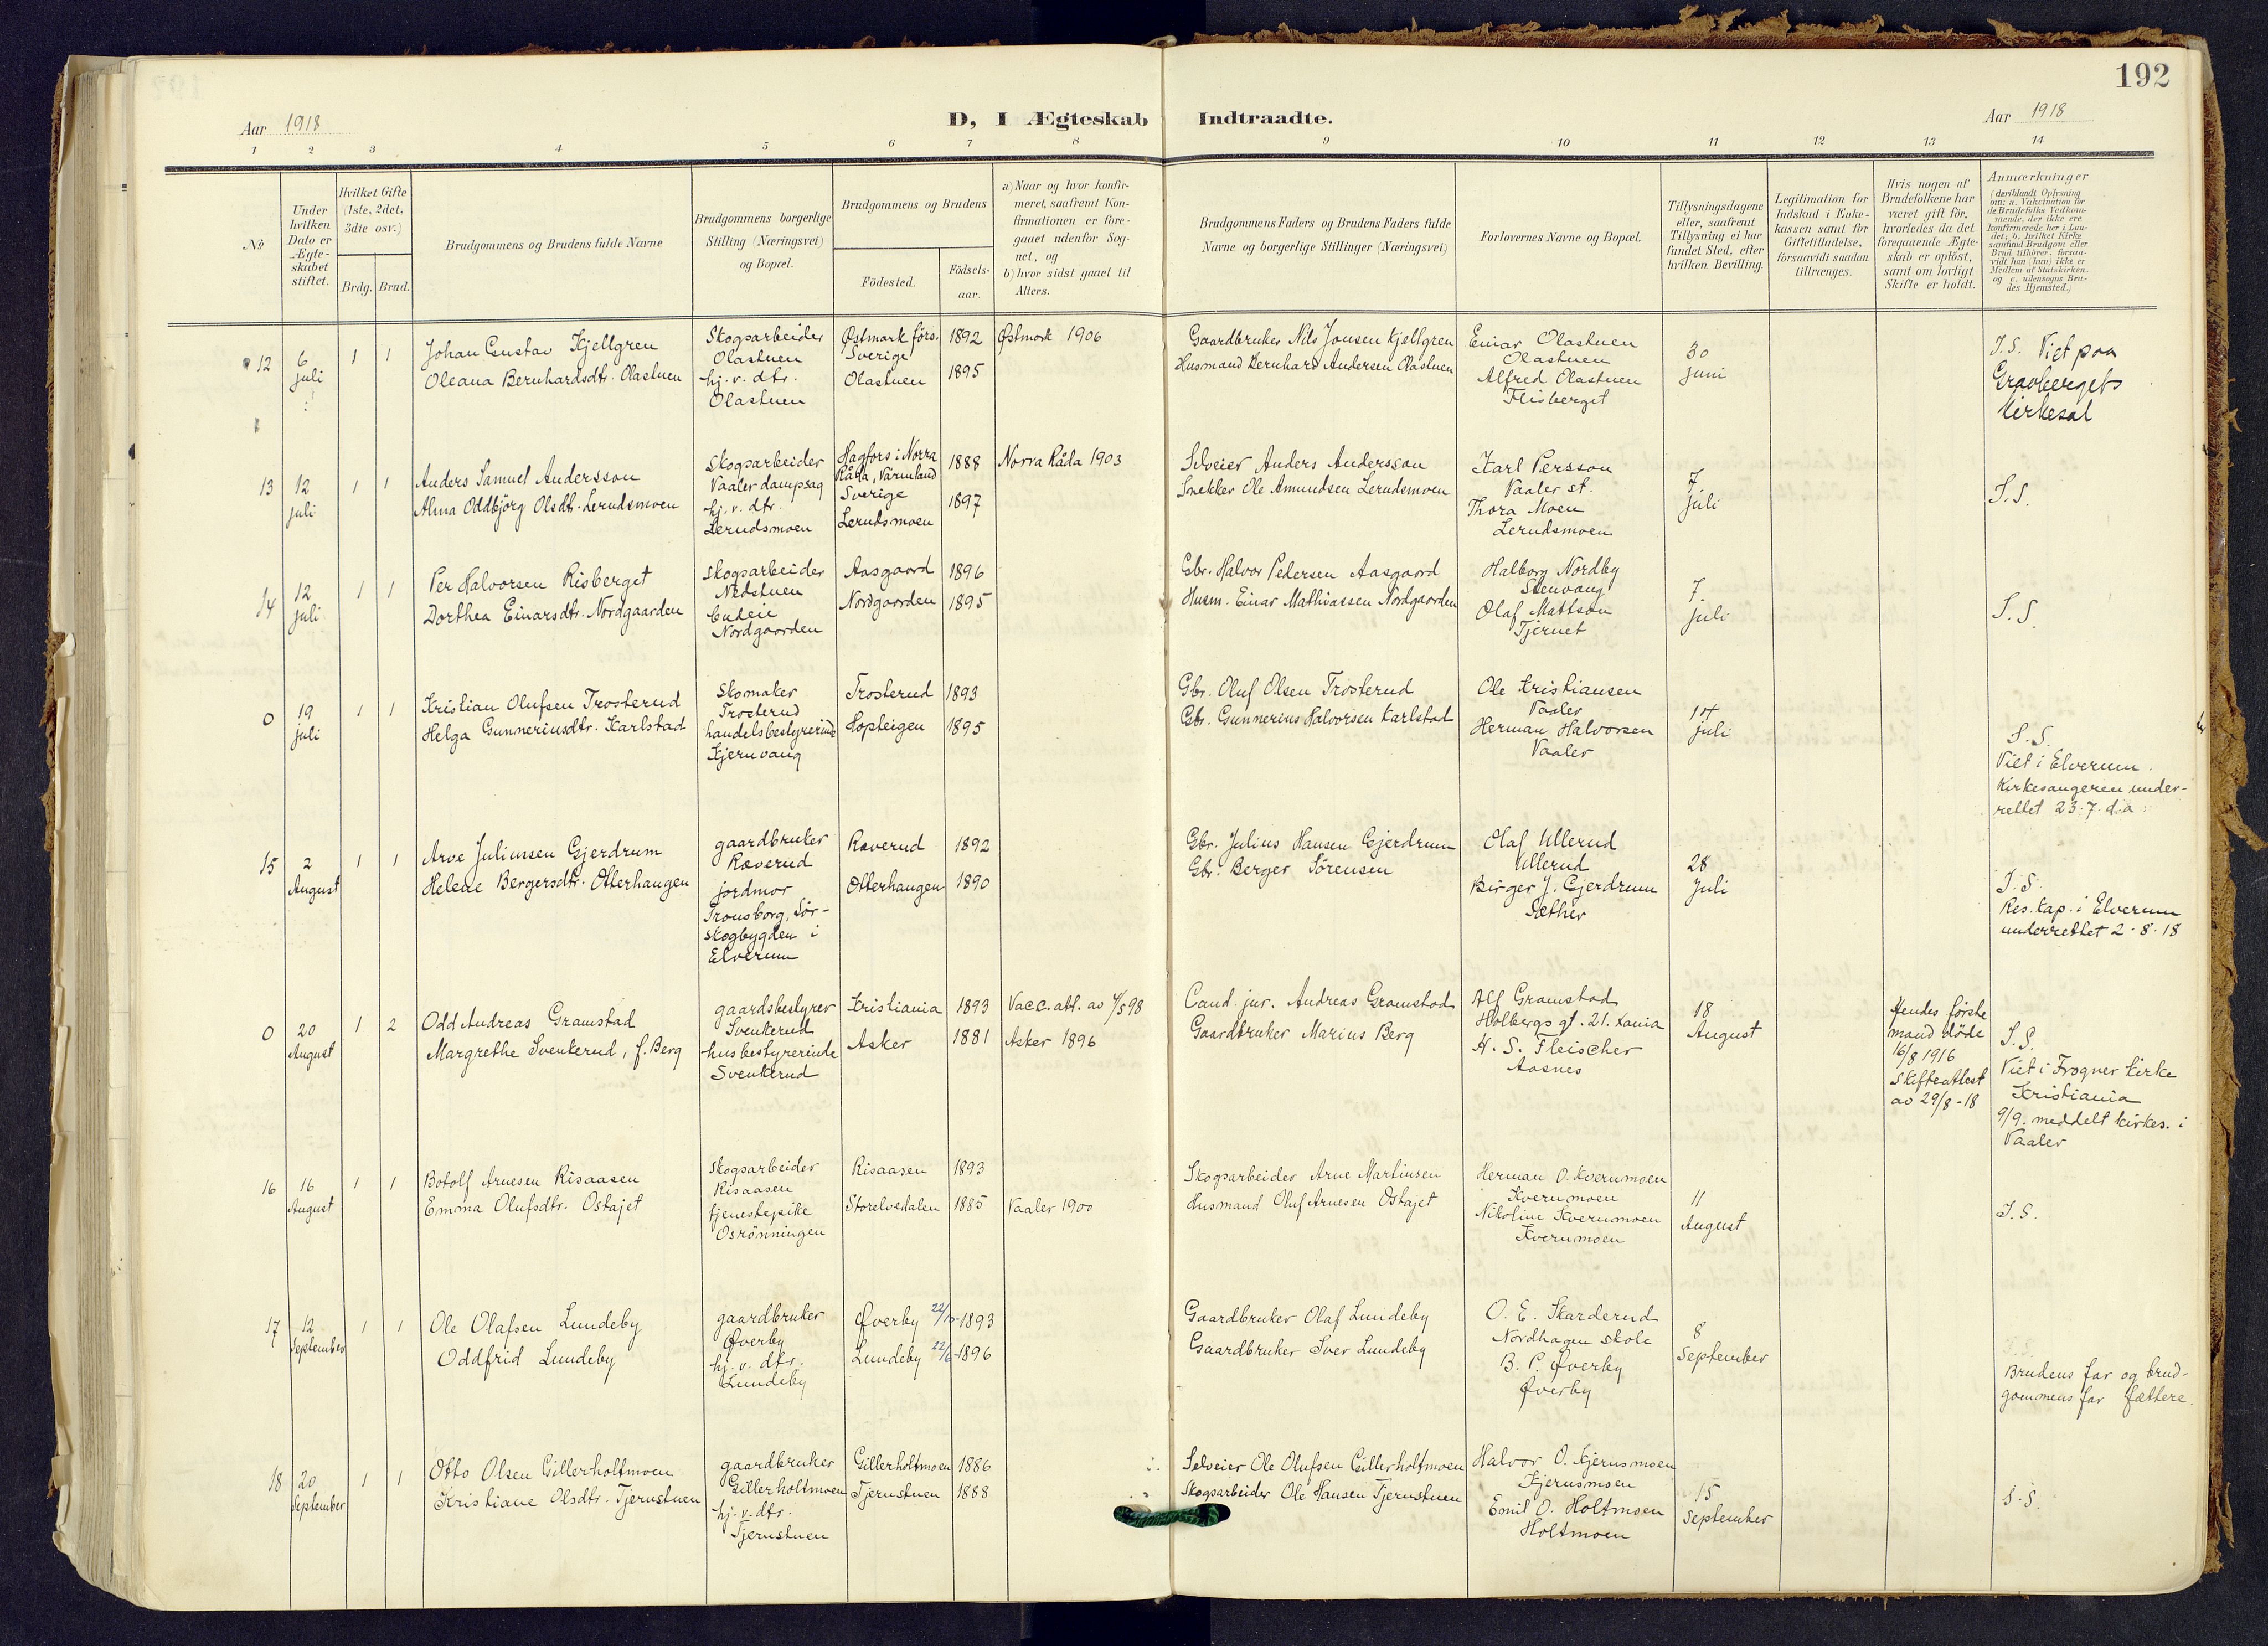 192
Aar 1918
D, I Ægteskab Indtraadte.
Aar 1918
1 2 3 4 5 6 7 8 9 10 11 12 13 14
No
Under hvilken Dato er Ægteskabet stiftet.
Hvilket Gifte (1ste, 2det, 3die osv.)
Brdg. Brud.
Brudgommens og Brudens fulde Navne
Brudgommens borgerlige Stilling (Næringsvei) og Bopæl.
Brudgommens og Brudens
Födested.
Födsels-aar.
a) Naar og hvor konfirmeret, saafremt Konfirmationen er foregaaet udenfor Sognet, og
b) hvor sidst gaaet til Alters.
Brudgommens Faders og Brudens Faders fulde Navne og borgerlige Stillinger (Næringsvei)
Forlovernes Navne og Bopæl.
Tillysningsdagene eller, saafremt Tillysning ei har fundet Sted, efter hvilken Bevilling.
Legitimation for Indskud i Enkekassen samt for Giftetilladelse, forsaavidt saadan tiltrænges.
Hvis nogen af Brudefolkene har været gift för, hvorledes da det foregaaende Ægteskab er oplöst, samt om lovligt Skifte er holdt.
Anmærkninger
(deriblandt Oplysning om: a. Vakcination for de Brudefolks Vedkommende, der ikke ere konfirmerede her i Landet; b. hvilket Kirkesamfund Brudgom eller Brud tilhörer, forsaavidt han (hun) ikke er Medlem af Statskirken. og c. udensogns Brudes Hjemsted.)
12
6 juli
1 1
Johan Gustav Kjellgren
Oleana Bernhardsdtr. Olastuen
Skogsarbeider
Olastuen
hj. v. dtr.
Olastuen
Østmark förs. Sverige 1892
Olastuen 1895
Østmark 1906
Gaardbruker Nils Jonsen Kjellgren
Husmand Bernhard Andersen Olastuen
Einar Olastuen
Olastuen
Alfred Olastuen
Flisberget
30 juni
S.S. Viet paa
Gravbergets
kirkesal
13
12 juli
1 1
Anders Samuel Andersson
Alma Oddbjörg Olsdtr. Lerudsmoen
Skogsarbeider
Vaaler dampsag
hj. v. dtr.
Lerudsmoen
Hagfors i Norra
Råda, Värmland
Sverige 1888
Lerudsmoen 1897
Norra Råda 1903
Selveier Anders Andersson
Snekker Ole Amundsen Lerudsmoen
Karl Persson
Vaaler st.
Thora Moen
Lerudsmoen
7 juli
S.S.
14
12 juli
1 1
Per Halvorsen Risberget
Dorthea Einarsdtr. Nordgaarden
Skogsarbeider
Nedstuen
Nordgaarden
Aasgaard 1896
Nordgaarden 1895
Gbr. Halvor Pedersen Aasgaard
Husm. Einar Mathiassen Nordgaarden
Halborg Nordby
Stenvang
Olaf Mattson
Tjernet
7. juli
S.S.
0
19 juli
1 1
Kristian Olufsen Trosterud
Helga Gunneriusdtr. Karlstad
Skomaker
Trosterud
handelsbestyrerinde
Kjernvang
Trosterud 1893
Hopteigen 1895
Gbr. Oluf Olsen Trosterud
Gbr. Gunnerius Halvorsen Karlstad
Ole Kristiansen
Vaaler
Herman Halvorsen
Vaaler
14 juli
S.S.
Viet i Elverum.
Kirkesangeren under-
rettet 23.7. d.a.
15
2 August
1 1
Arve Juliussen Gjerdrum
Helene Bergersdtr. Otterhaugen
gaardbruker
Raverud
jordmor
Tronsborg, Sör-
skogbygden i
Elverum
Raverud 1892
Otterhaugen 1890
Gbr. Julius Hansen Gjerdrum
Gbr. Berger Sörensen
Olaf Ullerud
Ullerud
Birger J. Gjerdrum
Sæther
28 Juli
S.S.
Res. kap. i Elverum
underrettet 2.8.18
0
20 August
1 2
Odd Andreas Gramstad
Margrethe Svenkerud, f. Berg
gaardsbestyrer
Svenkerud
husbestyrerinde
Svenkerud
Kristiania 1893
Asker 1881
Vacc. att. av 4/5 98
Asker 1896
Cand. jur. Andreas Gramstad
Gaardbruker Marius Berg
Alf Gramstad
Holbergs gt. 21. Xania
H. S. Fleischer
Aasnes
18 August
Hendes förste
mand döde
16/8 1916
Skifteattest
av 29/8-18
S.S.
Viet i Frogner kirke
Kristiania
9/9. meddelt kirkes. i
Vaaler
16
16 August
1 1
Botolf Arnesen Risaasen
Emma Olufsdtr. Ostajet
Skogsarbeider
Risaasen
tjenestepike
Osrönningen
Risaasen 1893
Storelvedalen 1885
Vaaler 1900
Skogsarbeider Arne Martinsen
Husmand Oluf Arnesen Ostajet
Herman O. Kvernmoen
Kvernmoen
Nikoline Kvernmoen
Kvernmoen
11 August
S.S.
17
12 September
1 1
Ole Olafsen Lundeby
Oddfrid Lundeby
gaardbruker
Øverby
hj. v. dtr.
Lundeby
Øverby 22/10-1893
Lundeby 22/6-1896
Gaardbruker Olaf Lundeby
Gaardbruker Iver Lundeby
O. E. Skarderud
Nordhagen skole
B. P. Øverby
Øverby
8 September
Brudens far og brud-
gommens far fættere.
18
20 September
1 1
Otto Olsen Gillerholtmoen
Kristiane Olsdtr. Tjernstuen
gaardbruker
Gillerholtmoen
hj. v. dtr.
Tjernstuen
Gillerholtmoen 1886
Tjernstuen 1888
Selveier Ole Olufsen Gillerholtmoen
Skogsarbeider Ole Hansen Tjernstuen
Halvor O. Kjernsmoen
Kjernsmoen
Emil O. Holtmoen
Holtmoen
15 September
S.S.